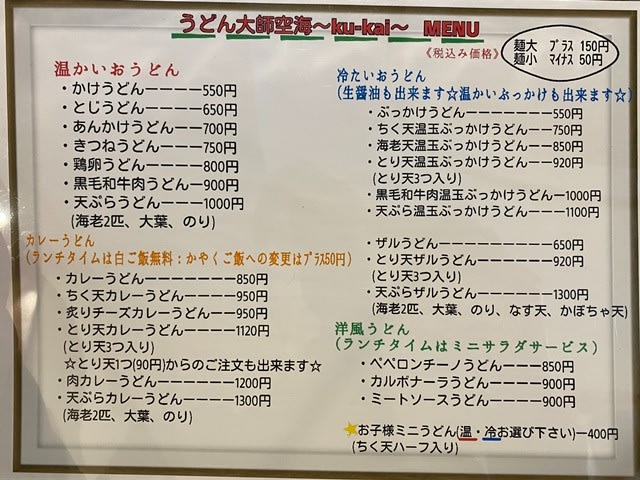 うどん大師空海～ku-kai～ MENU
《税込み価格》
麺大 プラス 150円
麺小 マイナス 50円
温かいおうどん
・かけうどん－－－－550円
・とじうどん－－－－650円
・あんかけうどん－－700円
・きつねうどん－－－750円
・鶏卵うどん－－－－800円
・黒毛和牛肉うどん－900円
・天ぷらうどん－－－1000円
(海老2匹、大葉、のり)
カレーうどん
(ランチタイムは白ご飯無料：かやくご飯への変更はプラス50円)
・カレーうどん－－－－－850円
・ちく天カレーうどん－－950円
・炙りチーズカレーうどん－950円
・とり天カレーうどん－－1120円
(とり天3つ入り)
☆とり天1つ(90円)からのご注文も出来ます☆
・肉カレーうどん－－－－1200円
・天ぷらカレーうどん－－1300円
(海老2匹、大葉、のり)
冷たいおうどん
(生醤油も出来ます☆温かいぶっかけも出来ます☆)
・ぶっかけうどん－－－－－－－550円
・ちく天温玉ぶっかけうどん－－750円
・海老天温玉ぶっかけうどん－－850円
・とり天温玉ぶっかけうどん－－920円
(とり天3つ入り)
・黒毛和牛肉温玉ぶっかけうどん－1000円
・天ぷら温玉ぶっかけうどん－－－1100円
・ザルうどん－－－－－－－650円
・とり天ザルうどん－－－－920円
(とり天3つ入り)
・天ぷらザルうどん－－－－1300円
(海老2匹、大葉、のり、なす天、かぼちゃ天)
洋風うどん
(ランチタイムはミニサラダサービス)
・ペペロンチーノうどん－－－850円
・カルボナーラうどん－－－－900円
・ミートソースうどん－－－－900円
⭐お子様ミニうどん(温・冷お選び下さい)－400円
(ちく天ハーフ入り)